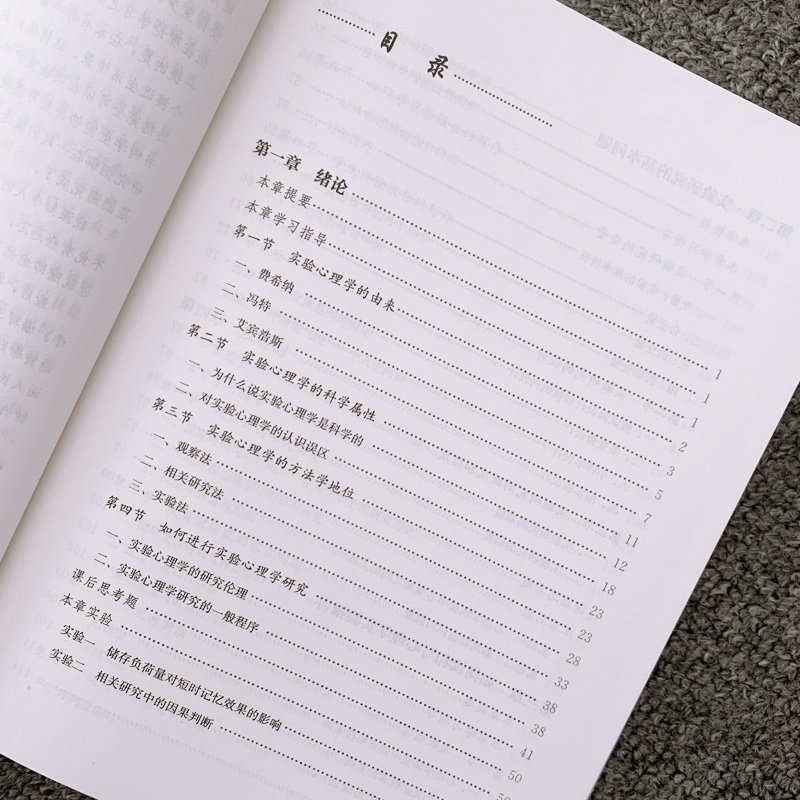 目 录
第一章 绪论 1
本章提要 1
本章学习指导 1
第一节 实验心理学的由来 2
一、费希纳 3
二、冯特 5
三、艾宾浩斯 7
第二节 实验心理学的科学属性 11
一、为什么说实验心理学是科学的 12
二、对实验心理学的认识误区 18
第三节 实验心理学的方法学地位 23
一、观察法 23
二、相关研究法 28
三、实验法 33
第四节 如何进行实验心理学研究 38
一、实验心理学的研究伦理 38
二、实验心理学研究的一般程序 41
课后思考题 50
本章实验 50
实验一 储存负荷量对短时记忆效果的影响
实验二 相关研究中的因果判断